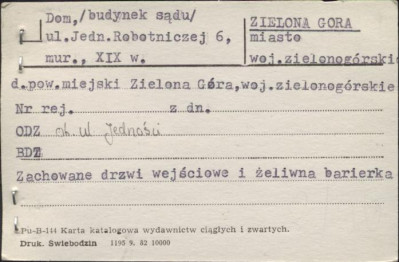 Dom,/budynek sądu/
ul.Jedn.Robotniczej 6,
mur., XIX w.
ZIELONA GÓRA
miasto
woj.zielonogórskie
d.pow.miejski Zielona Góra,woj.zielonogórskie
Nr rej. z dn.
ODZ ob. ul Jedności
BDZ
Zachowane drzwi wejściowe i żeliwna barierka
Pu-B-144 Karta katalogowa wydawnictw ciągłych i zwartych.
Druk. Świebodzin 1195 9. 52 10000